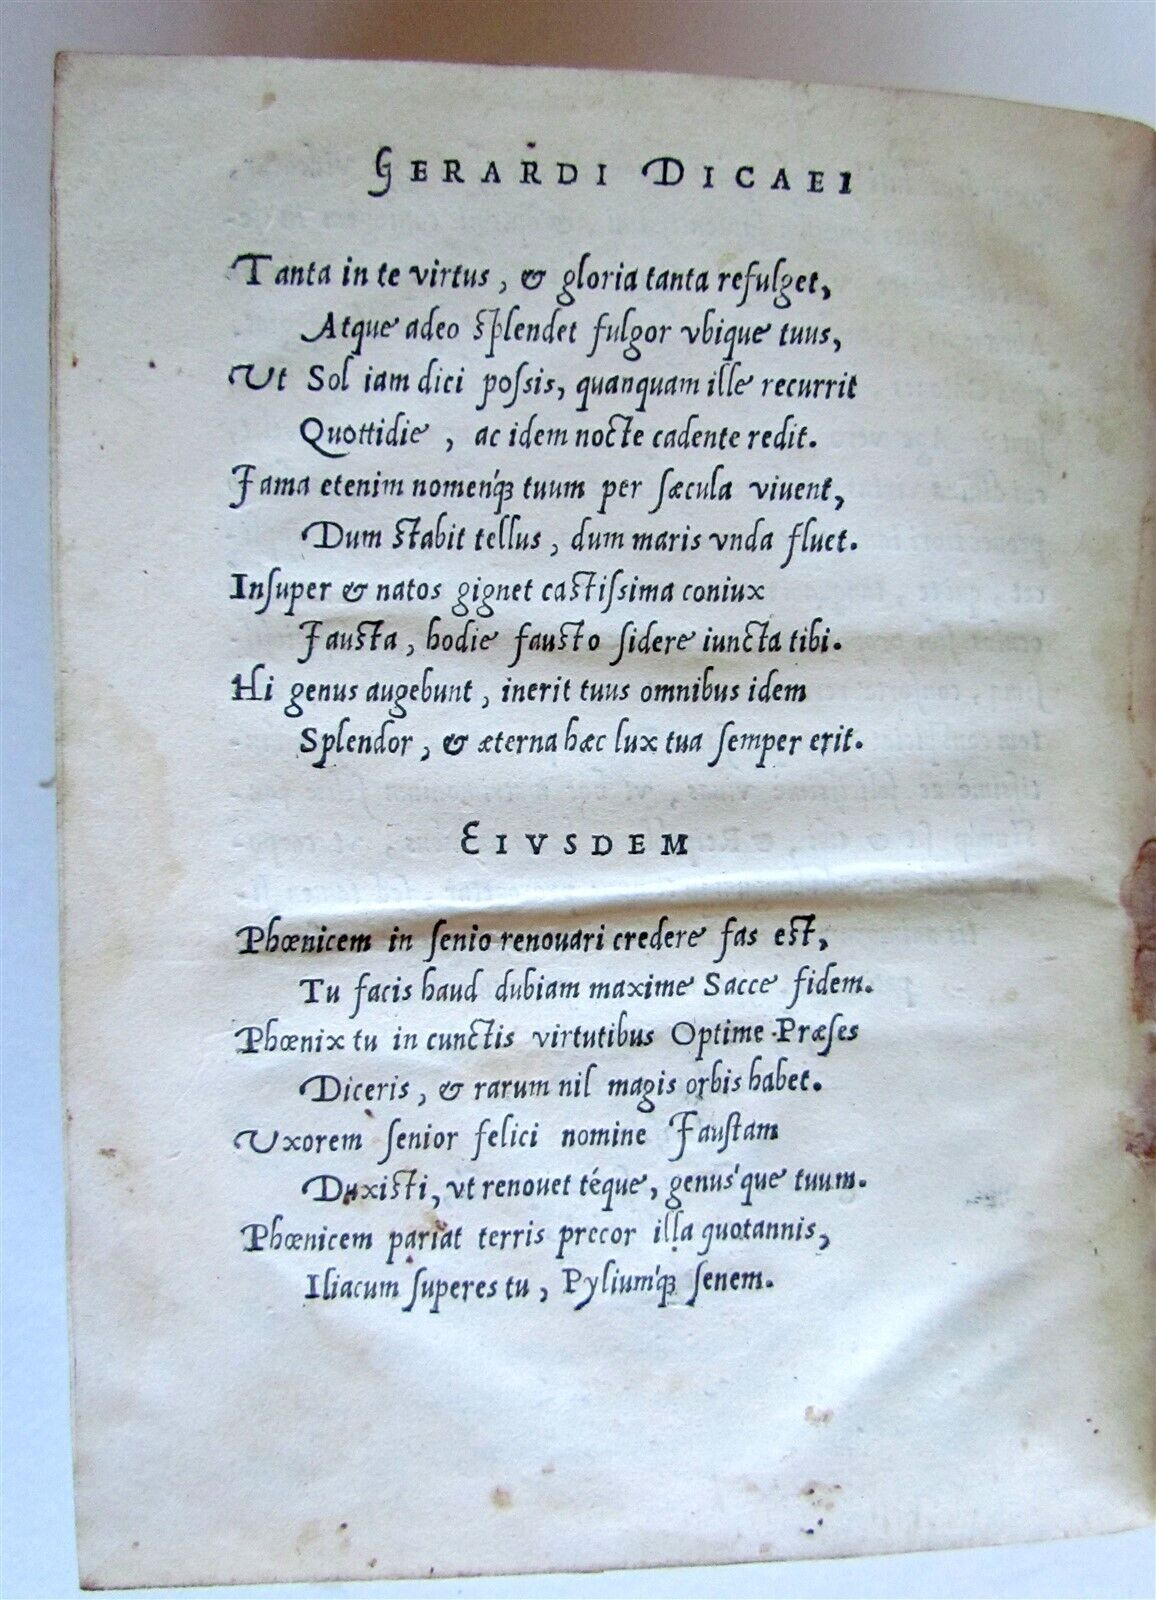 GERARDI DICAEI
Tanta in te virtus, & gloria tanta refulget,
Atque adeo splendet fulgor vbique tuus,
Ut Sol iam dici poſsis, quanquam ille recurrit
Quottidie, ac idem nocte cadente redit.
Fama etenim nomenq́; tuum per ſæcula viuent,
Dum stabit tellus, dum maris vnda fluet.
Inſuper & natos gignet castiſsima coniux
Fausta, hodie fausto ſidere iuncta tibi.
Hi genus augebunt, inerit tuus omnibus idem
Splendor, & æterna hæc lux tua ſemper erit.
EIVSDEM
Phœnicem in ſenio renouari credere fas est,
Tu facis haud dubiam maxime Sacce fidem.
Phœnix tu in cunctis virtutibus Optime Præſes
Diceris, & rarum nil magis orbis habet.
Uxorem ſenior felici nomine Fauſtam
Duxisti, vt renouet téque, genus'que tuum.
Phœnicem pariat terris precor illa quotannis,
Iliacum ſuperes tu, Pyliumq́; ſenem.